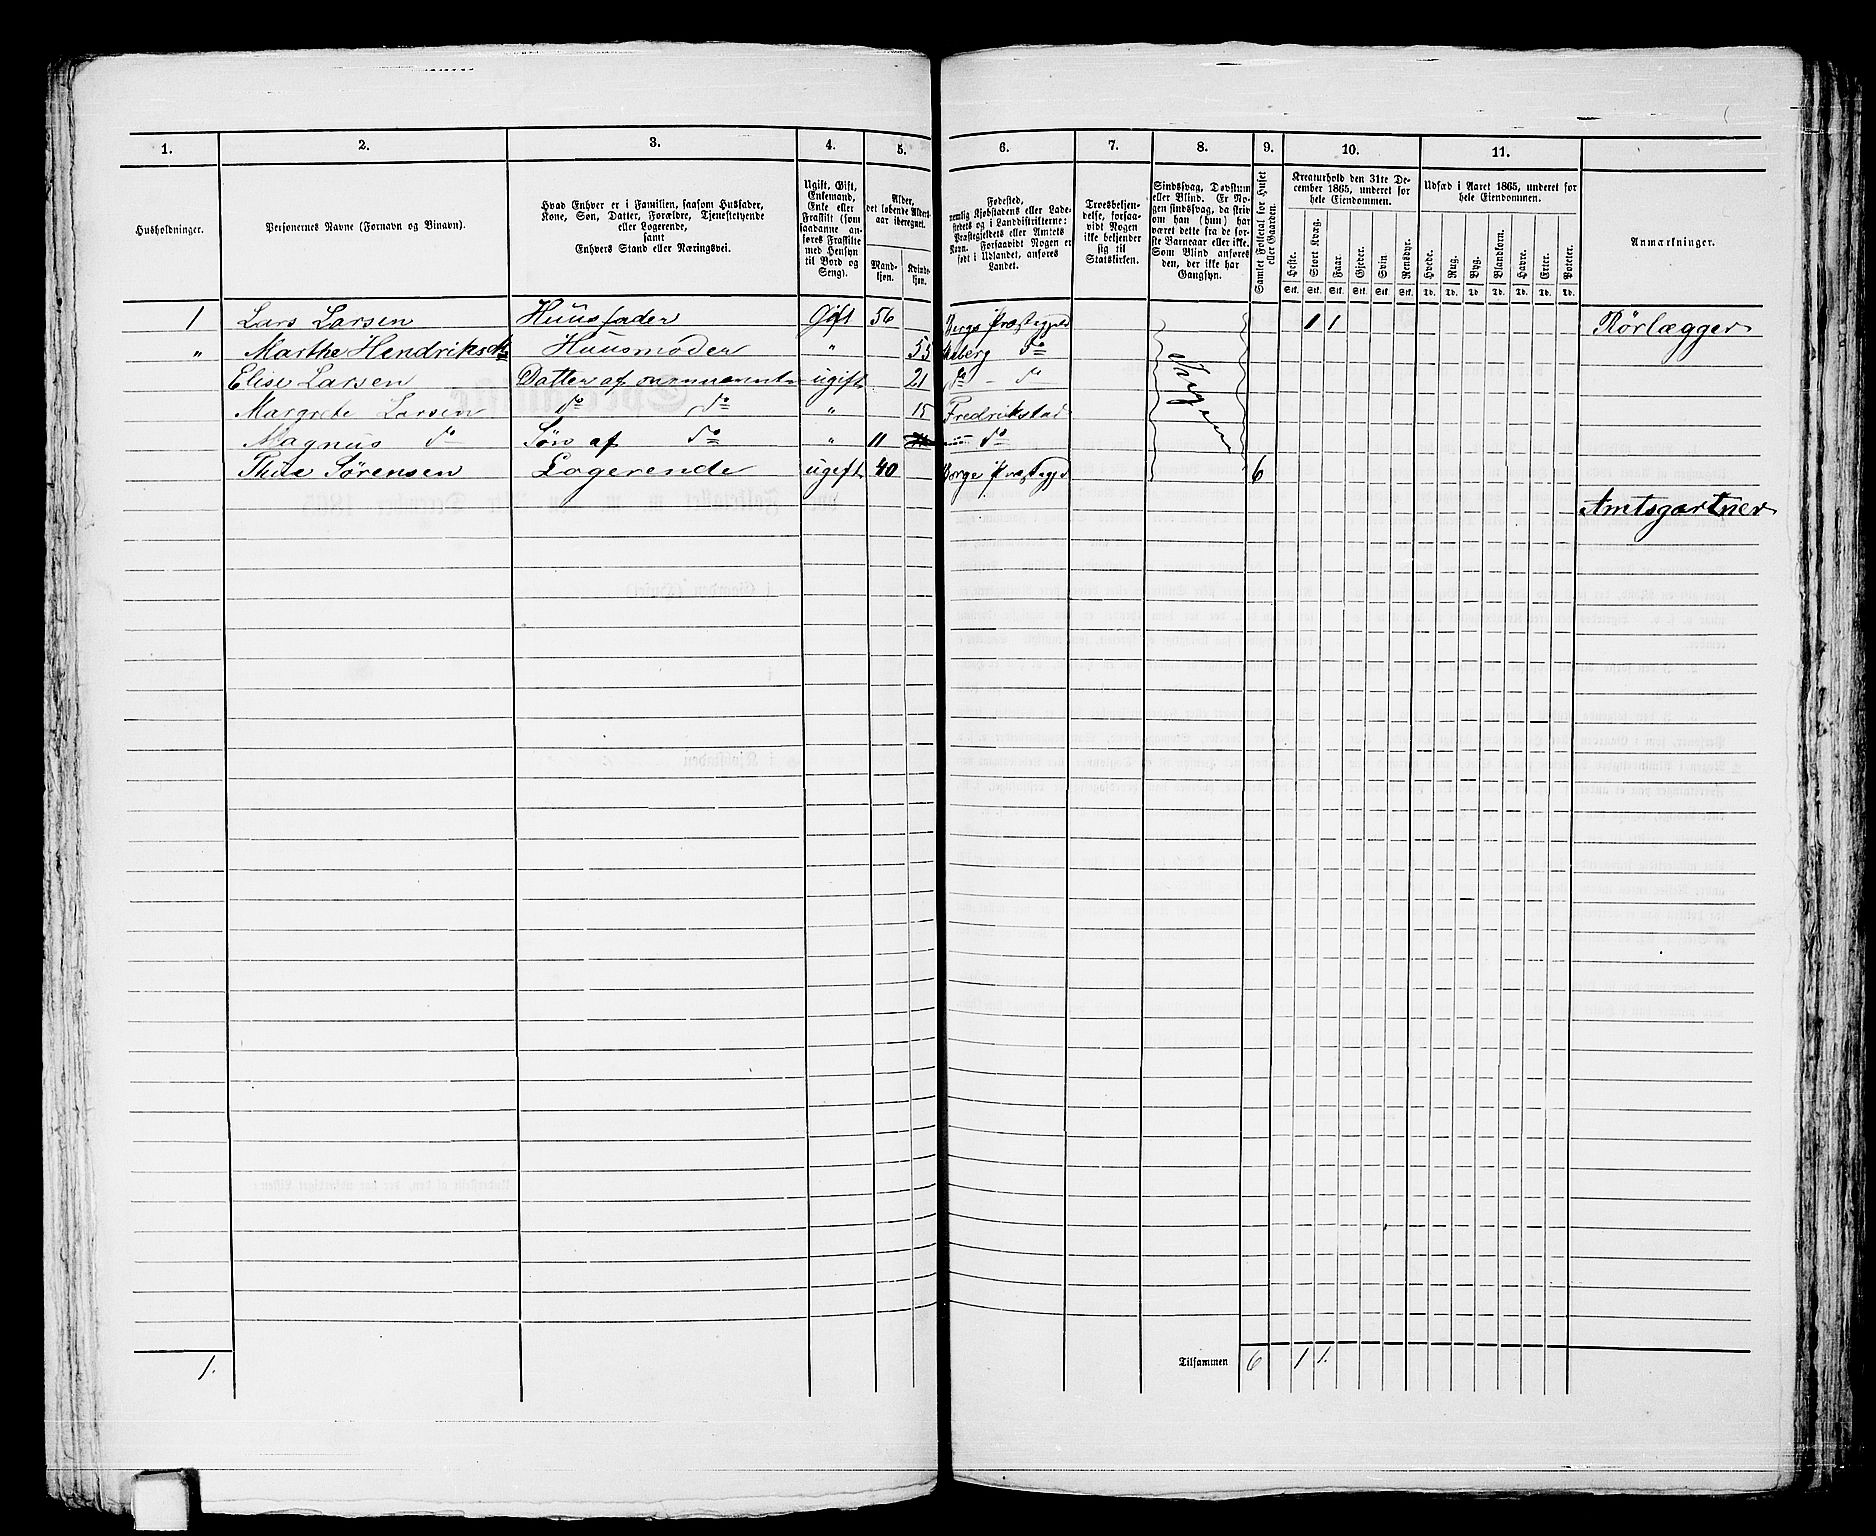 1. 2. 3. 4. 5. 6. 7. 8. 9. 10. 11.
Husholdninger.
Personernes Navne (Fornavn og Binavn).
Hvad Enhver er i Familien, saasom Husfader,
Kone, Søn, Datter, Forældre, Tjenestetyende
eller Logerende,
samt
Enhvers Stand eller Næringsvei.
Ugift, Gift,
Enkemand,
Enke eller
Fraskilt (som
saadanne an-
føres Fraskilte
med Hensyn
til Bord og
Seng).
Alder,
det løbende Alders-
aar iberegnet.
Mand-
kjøn.
Kvinde-
kjøn.
Fødested,
nemlig Kjøbstadens eller Lade-
stedets og i Landdistrikterne:
Præstegjeldets eller Amtets
Navn. Forsaavidt Nogen er
født i Udlandet, anføres
Landet.
Troesbekjen-
delse, forsaa-
vidt Nogen
ikke bekjender
sig til
Statskirken.
Sindssvag, Døvstum
eller Blind. Er No-
gen sindssvag, da skriv
om han (hun) har
været dette fra de før-
ste Barneaar eller ikke.
Som Blind anføres
den, der ikke har
Gangsyn.
Samlet Folketal for Huset
eller Gaarden.
Kreaturhold den 31te De-
cember 1865, underet for
hele Eiendommen.
Heste. Stort Kvæg. Faar. Gjeder. Svin. Rensdyr.
Stk. Stk. Stk. Stk. Stk. Stk.
Udsæd i Aaret 1865, underet for
hele Eiendommen.
Hvede. Rug. Byg. Blandkorn. Havre. Erter. Poteter.
Td. Td. Td. Td. Td. Td. Td.
Anmærkninger.
1 Lars Larsen Huusfader Gift 56 Borge Præstegjeld 1 1 Rørlægger
" Marthe Huusmoder " 53 do
Elise Larsen Datter af ugift 21 do do
Margrete Larsen do do " 15 Fredrikstad
Magnus do Søn af do " 11 do
Sørensen Logerende ugift 40 Borge 6
Ingen
Amtsgartner
1. Tilsammen 6 1 1.